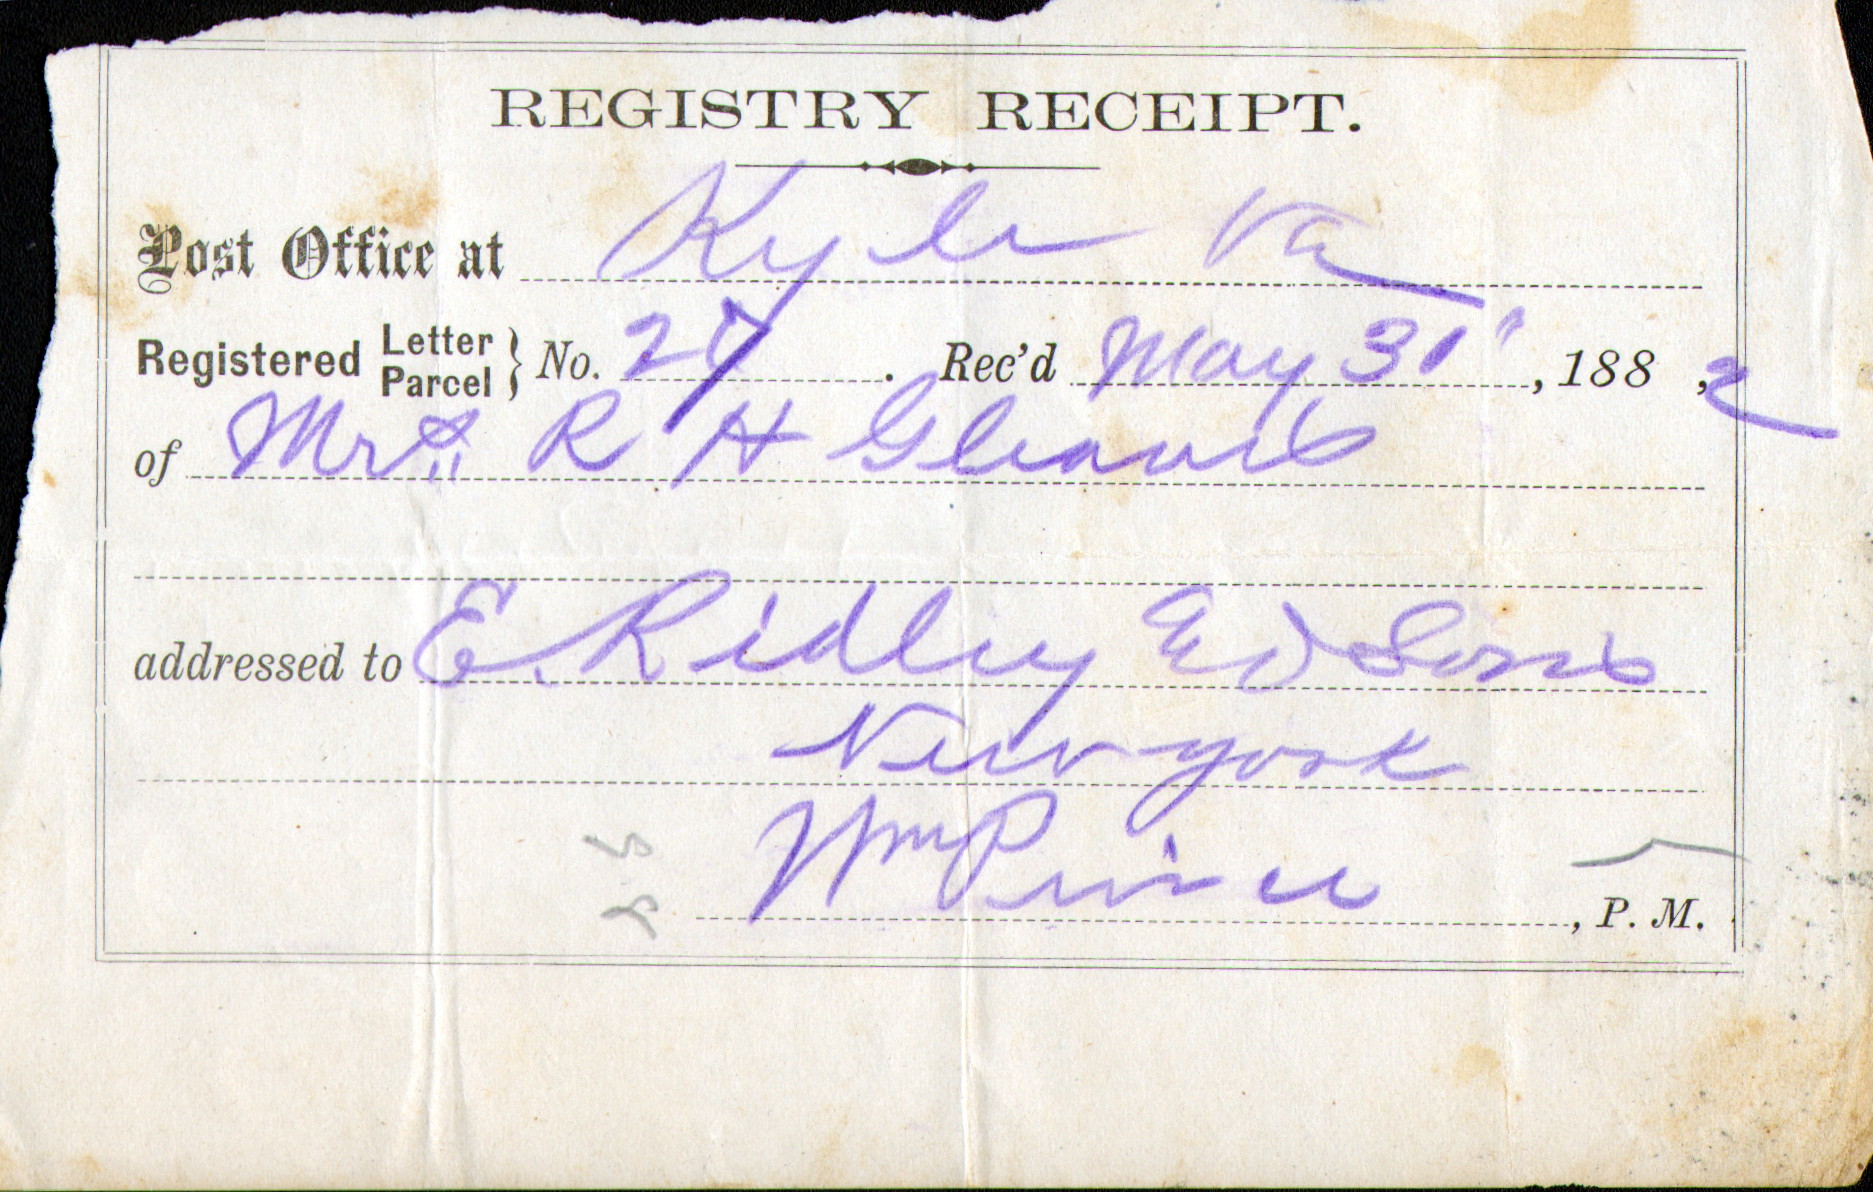 REGISTRY RECEIPT.
Post Office at Kyle Va
Registered Letter Parcel } No. 24. Rec'd May 31", 188 , 2
of Mrs. R H Gleaves
addressed to E. Ridley & Sons
New York
Wm Prince, P. M.